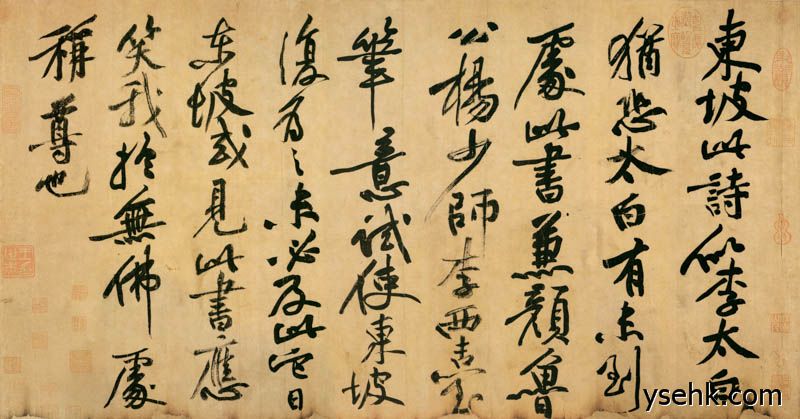 東坡此詩似李太白
猶恐太白有未到
處此書兼顏魯
公楊少師李西臺
筆意試使東坡
復為之未必及此它日
东坡或見此書應
笑我於無佛處
稱尊也
ysehk.com